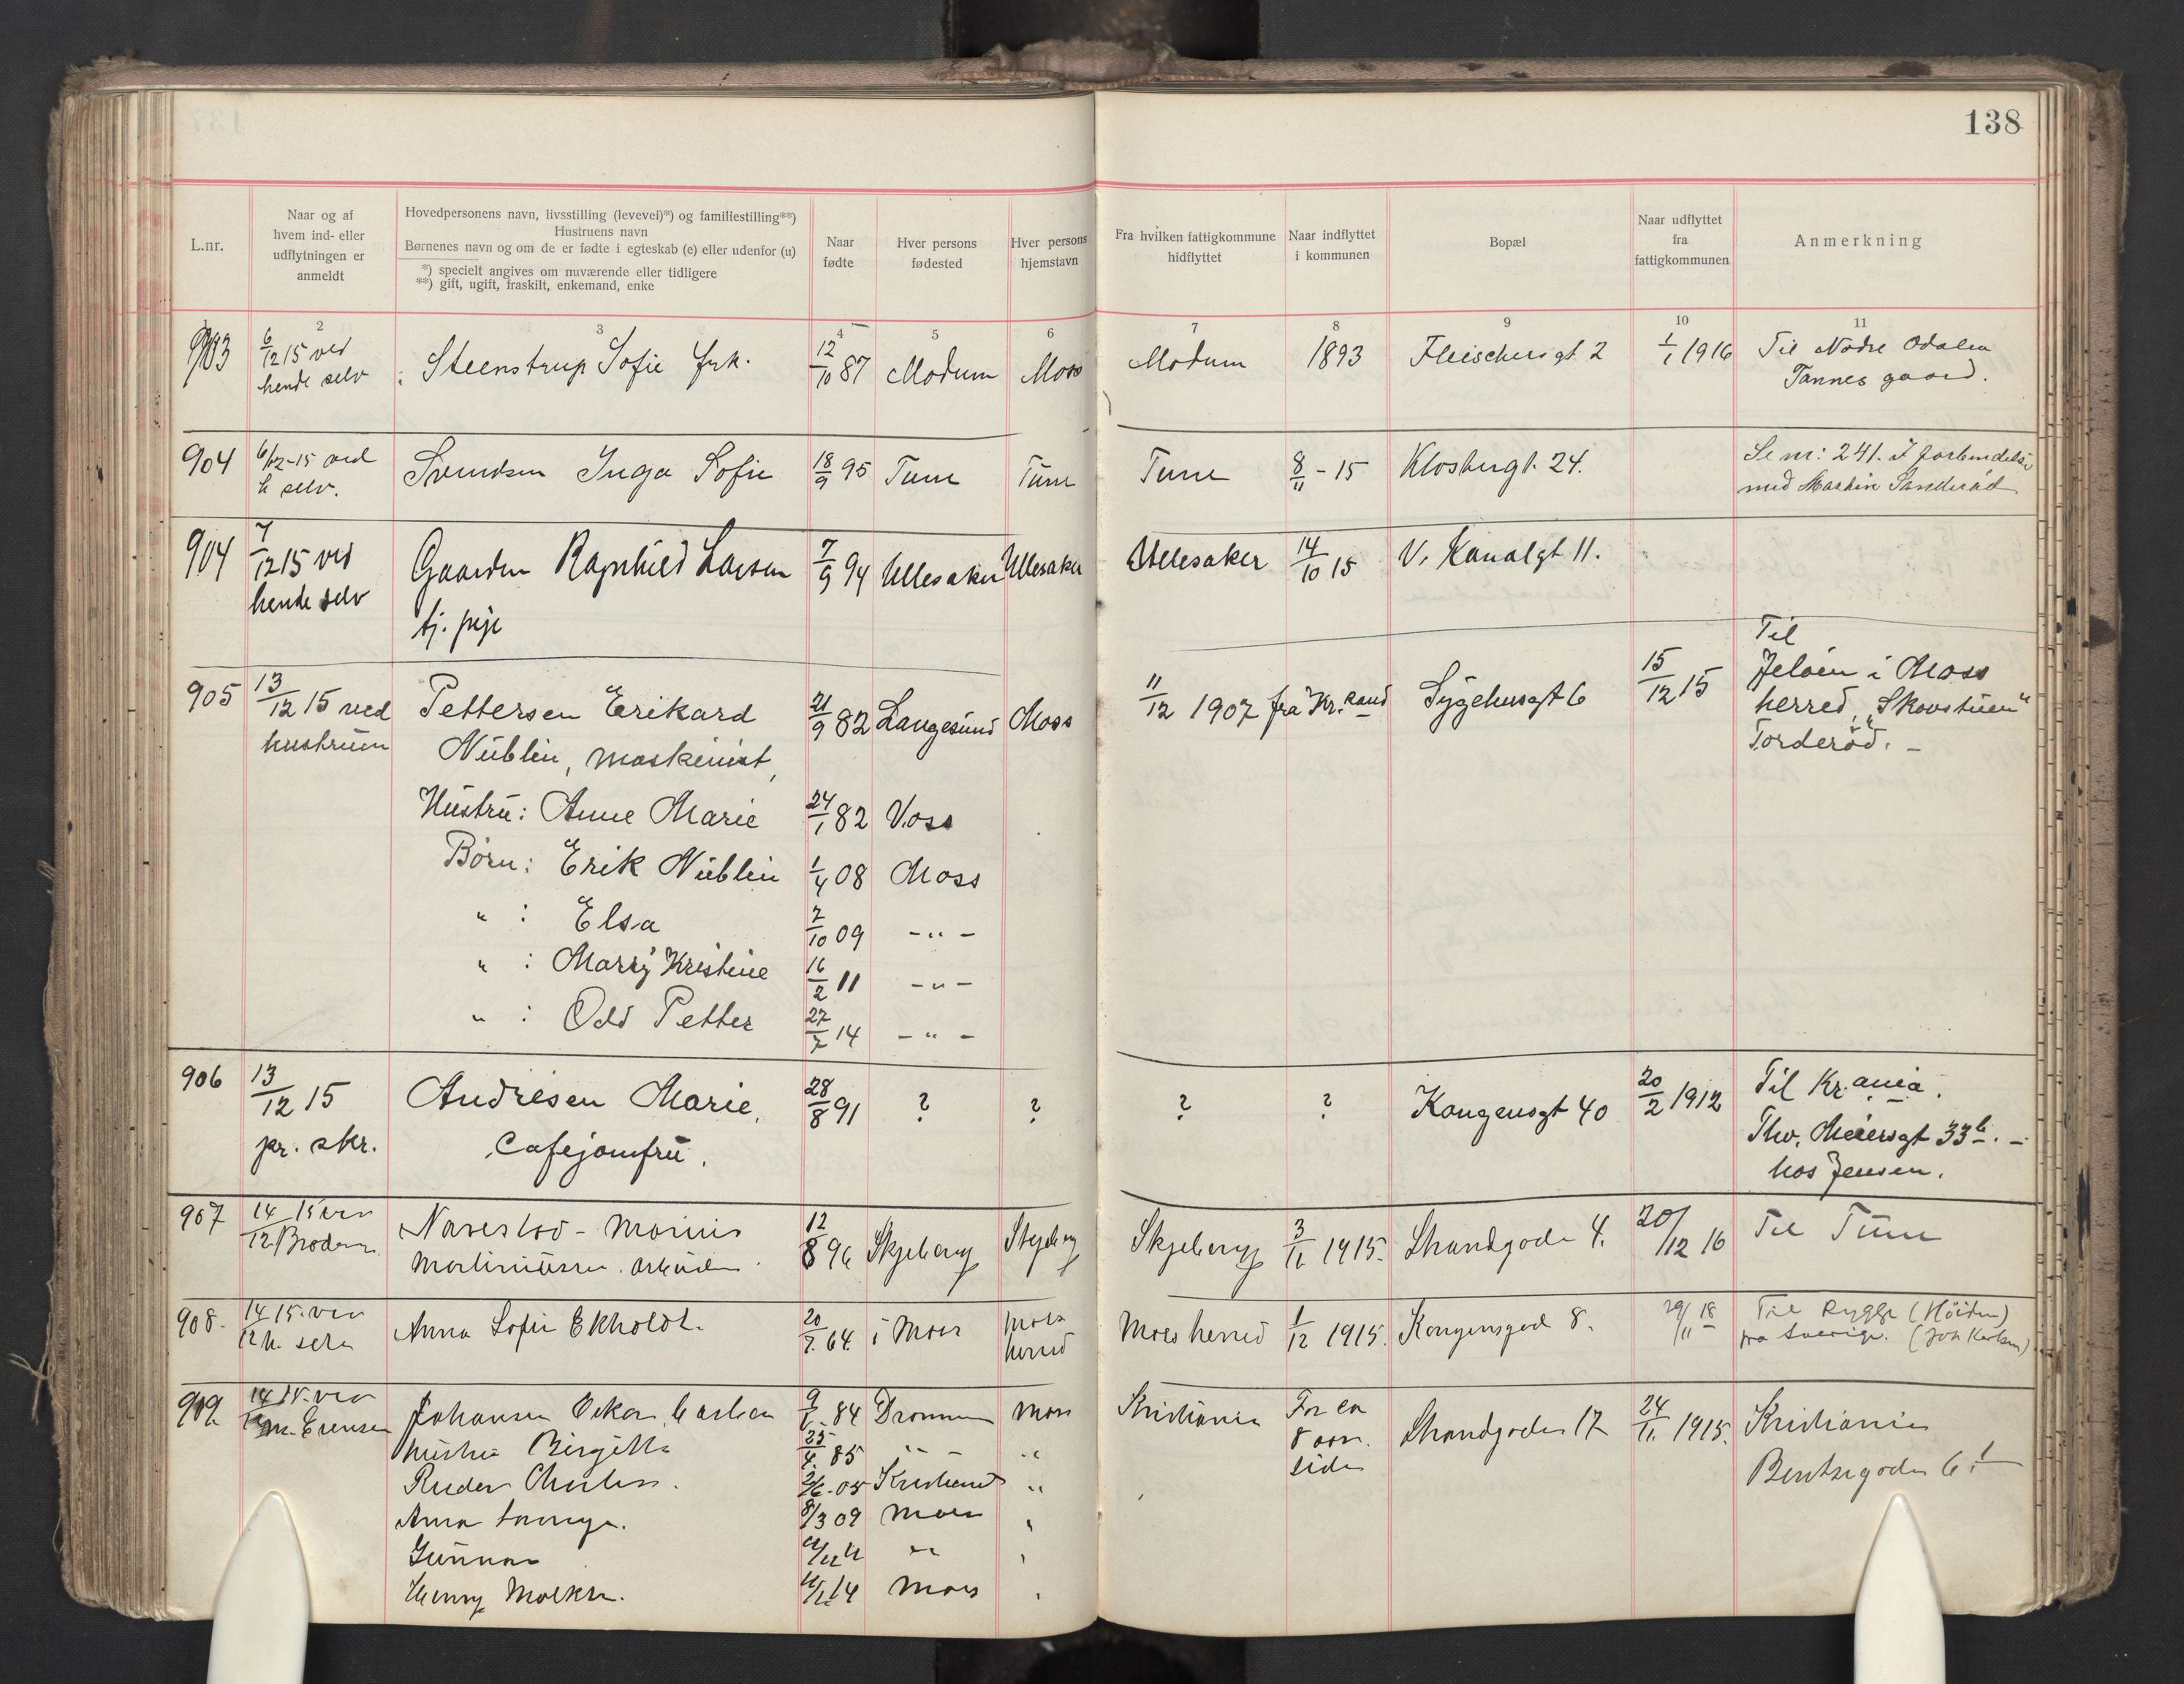 138
L.nr.
Naar og af
hvem ind- eller
udflytningen er
anmeldt
Hovedpersonens navn, livsstilling (levevei)*) og familiestilling**)
Hustruens navn
Børnenes navn og om de er fødte i egteskab (e) eller udenfor (u)
*) specielt angives om nuværende eller tidligere
**) gift, ugift, fraskilt, enkemand, enke
Naar
fødte
Hver persons
fødested
Hver persons
hjemstavn
Fra hvilken fattigkommune
hidflyttet
Naar indflyttet
i kommunen
Bopæl
Naar udflyttet
fra
fattigkommunen
Anmerkning
2 3 4 5 6 7 8 9 10 11
903 6/12 15 ved Steenstrup Sofie frk. 12/10 87 Modum Moss Modum 1893 Fleischersgt 2 1/1 1916 Til Nodre Odalen
hende selv Tannes gaard.
904 6/12-15 ved Svendsen Inga Sofie 18/9 95 Tune Tune Tune 8/11 - 15 Klosbergt. 24. Se nr: 241. I forbindelse
h selv. med Martin
904 7/12 15 ved Gaarder Ragnhild Larsen 7/9 94 Ullesaker Ullesaker Ullesaker 14/10 15 V. Kanalgt 11.
hende selv
tj. pige
905 13/12 15 ved Pettersen Erikard 21/9 82 Langesund Moss 11/12 1907 fra Kr.sand Sygehusgt 6 15/12 15 Til
Jeløen i Moss
herred, "Skovstuen"
Torderød. -
hustruen Nüblin, maskinist,
Hustru: Anne Marie 24/1 82 Voss
Børn: Erik Nüblin 1/4 08 Moss
" : Elsa 7/10 09 -"-
" : Marry Kristine 16/2 11 -"-
" : Odd Petter 27/7 14 -"-
906 13/12 15 Andresen Marie, 28/8 91 ? ? ? ? Kongensgt 40 20/2 1912 Til Kr.ania.
pr. skr. Cafejomfru. Thv. Meiersgt 33b. -
hos Jensen.
907 14/12 15 ved Navestad - Marius 12/8 96 Skjeberg Skjeberg Skjeberg 3/11 1915. Strandgade 4. 20/12 16 Til Tune
Broderen Martiniussen. arbeider.
908. 14/12 15. ved Anna Sofie Ekholdt. 20/7. 64. i Moss Moss Moss herred 1/12 1915. Kongensgad 8. 29/11 18 Til Rygge (Høiden)
h. selv herred fra Sverige. (Joh Karlsen)
909. 14/12 15. ved Johansen Oskar Carlsen 9/6. 84 Drammen Moss Kristiania For ca Strandgaden 17 24/11. 1915. Kristiania
Hustru Birgitta 25/4. 85 " - " 8 aar.
siden
Reider Charles. 2/6. 05 Kristiansd "
Bentsegaden 6
Anna 8/3 09 Moss "
Gunnar "
Henry 14 Moss "